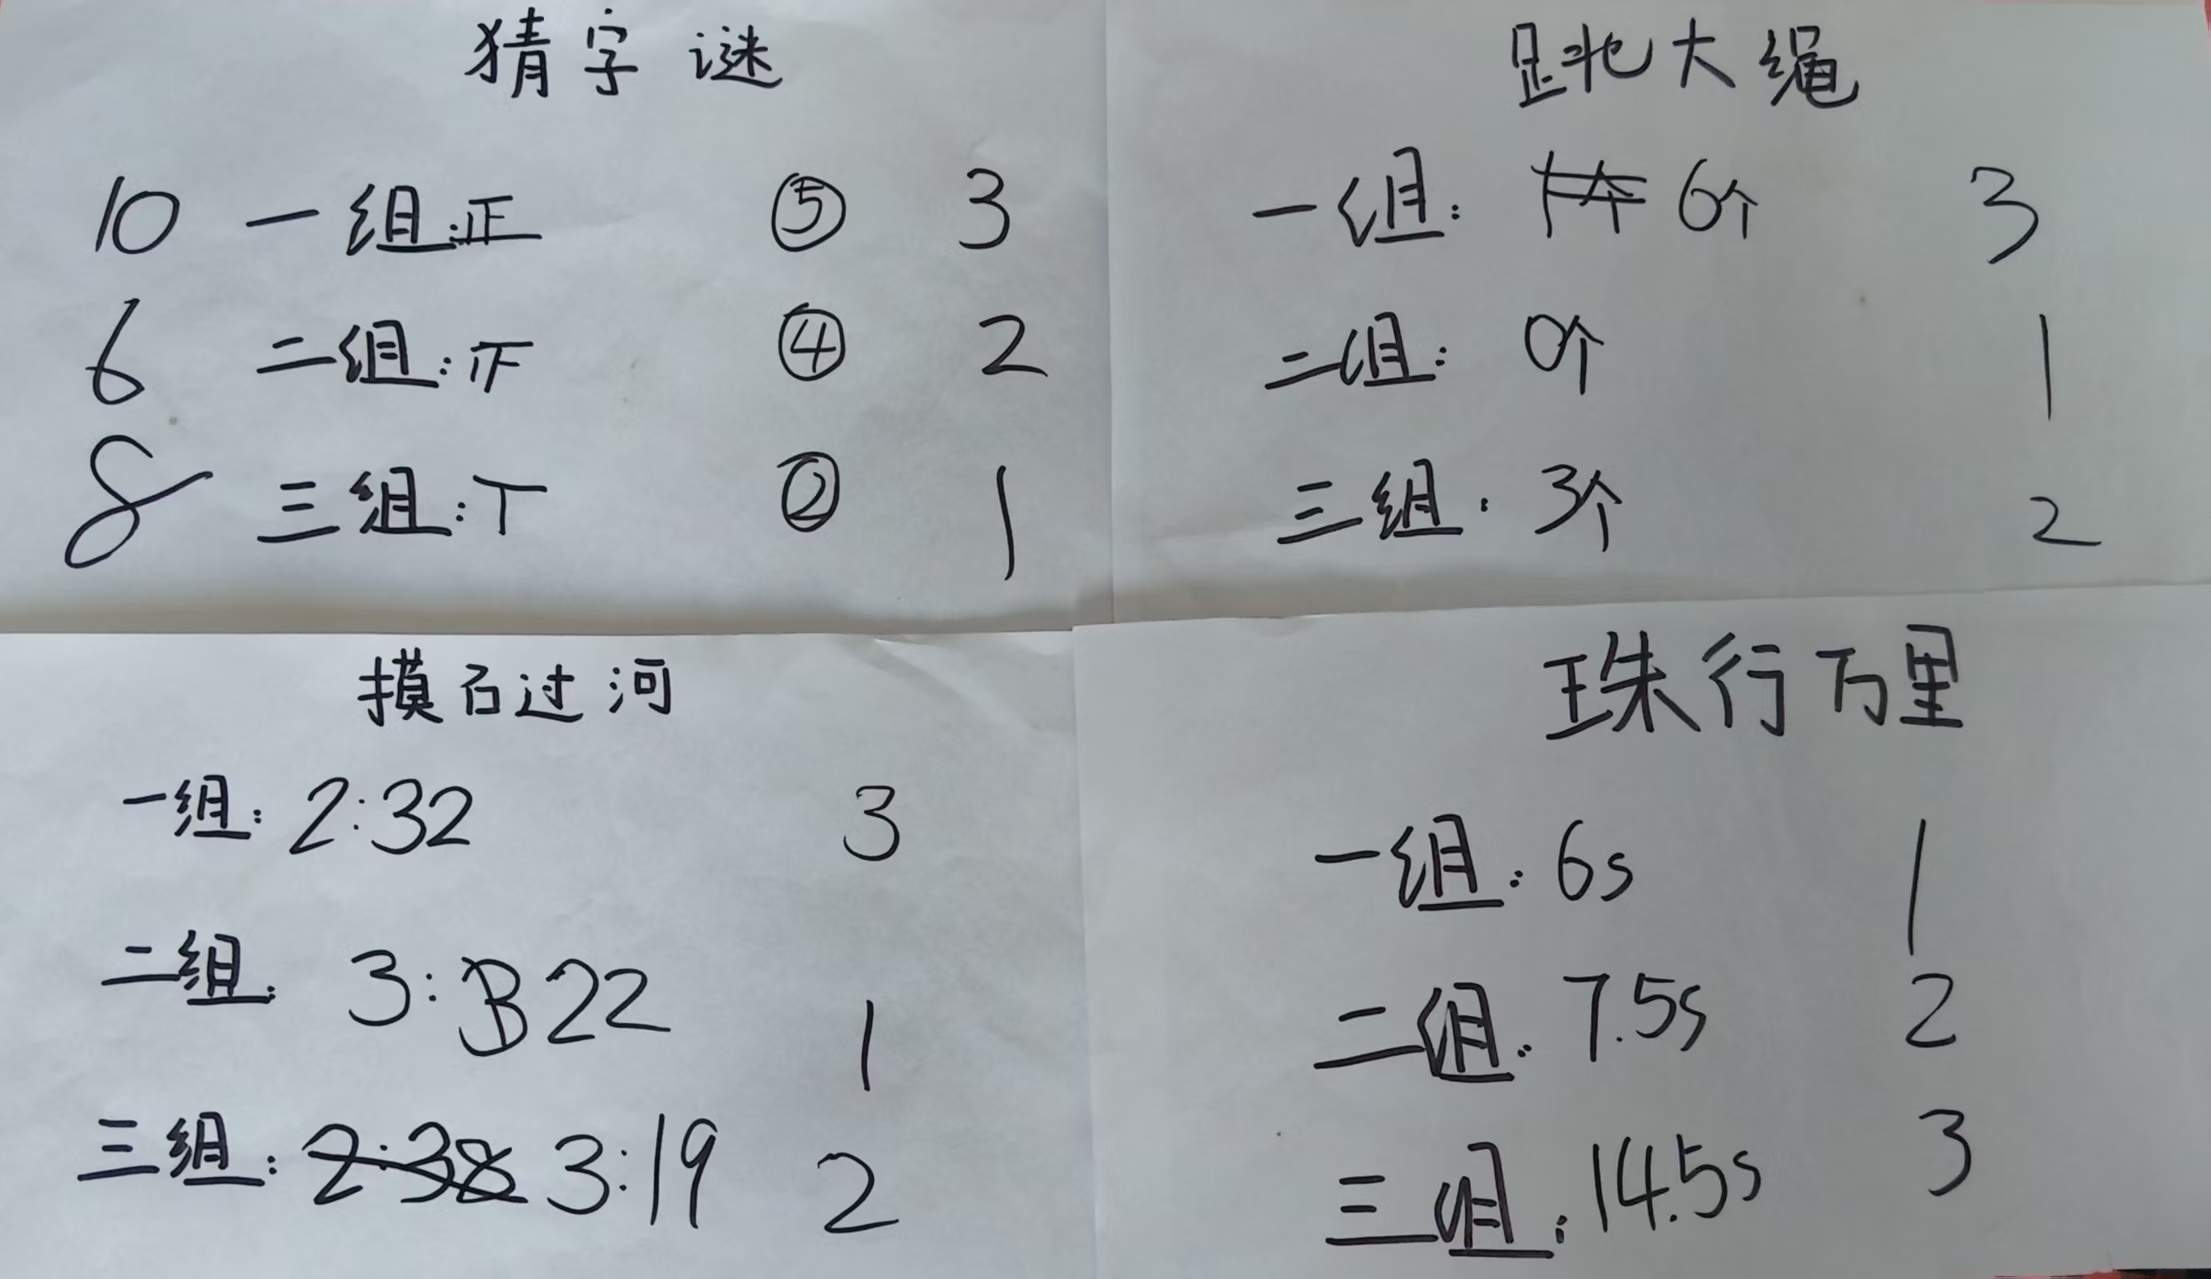 猜字谜
10 一组:正 ⑤ 3
6 二组:正 ④ 2
8 三组:丅 ② 1
跳大绳
一组: 6个 3
二组: 0个 1
三组: 3个 2
摸石过河
一组: 2:32 3
二组: 3:22 1
三组: 2:38 3:19 2
珠行万里
一组: 6s 1
二组: 7.5s 2
三组: 14.5s 3